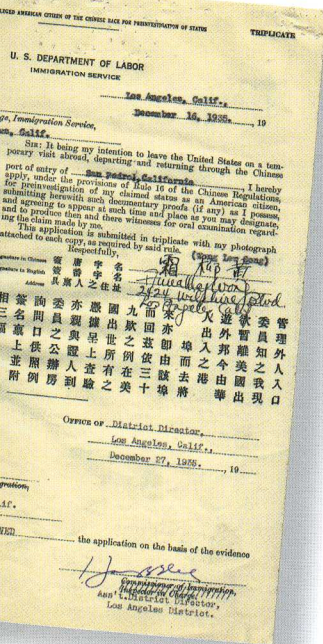 LEGED AMERICAN CITIZEN OF THE CHINESE RACE FOR PREINVESTIGATION OF STATUS
TRIPLICATE
U. S. DEPARTMENT OF LABOR
IMMIGRATION SERVICE
Los Angeles, Calif.,
December 16, 1935. , 19
ge, Immigration Service,
Calif.
SIR: It being my intention to leave the United States on a tem-
porary visit abroad, departing and returning through the Chinese
port of entry of San Pedro, California , I hereby
apply, under the provisions of Rule 16 of the Chinese Regulations,
for preinvestigation of my claimed status as an American citizen,
submitting herewith such documentary proofs (if any) as I possess,
and agreeing to appear at such time and place as you may designate,
and to produce then and there witnesses for oral examination regard-
ing the claim made by me.
This application is submitted in triplicate with my photograph
attached to each copy, as required by said rule.
Respectfully,
Signature in Chinese
Signature in English
Address
2424 Wilshire Blvd
Los Angeles Calif
管理外人入口
委員知之我現
欲暫離美國出
遊外邦今由華
人出入之港
埠而去將
來亦即由該埠
而回茲依三十
九款之例在美
國出世所有之
憑據呈上查驗
亦親與證人到
委員之公辦房
詢問口供照例
簽名上並附
相三幅
OFFICE OF District Director,
Los Angeles, Calif.,
December 27, 1935. , 19
gration,
lif.
the application on the basis of the evidence
Commissioner of Immigration,
Inspector in Charge,
Ass't. District Director,
Los Angeles District.